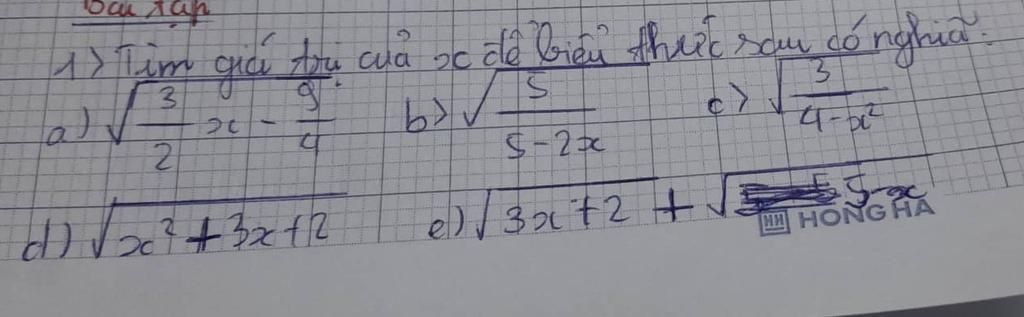 Bài tập
1> Tìm giá trị của x để biểu thức sau có nghĩa:
a) √(3/2 x - 9/4) b> √(5/(5-2x)) c> √(3/(4-x²))
d) √(x²+3x+2) e) √(3x+2) + √(5-x)
HONG HA